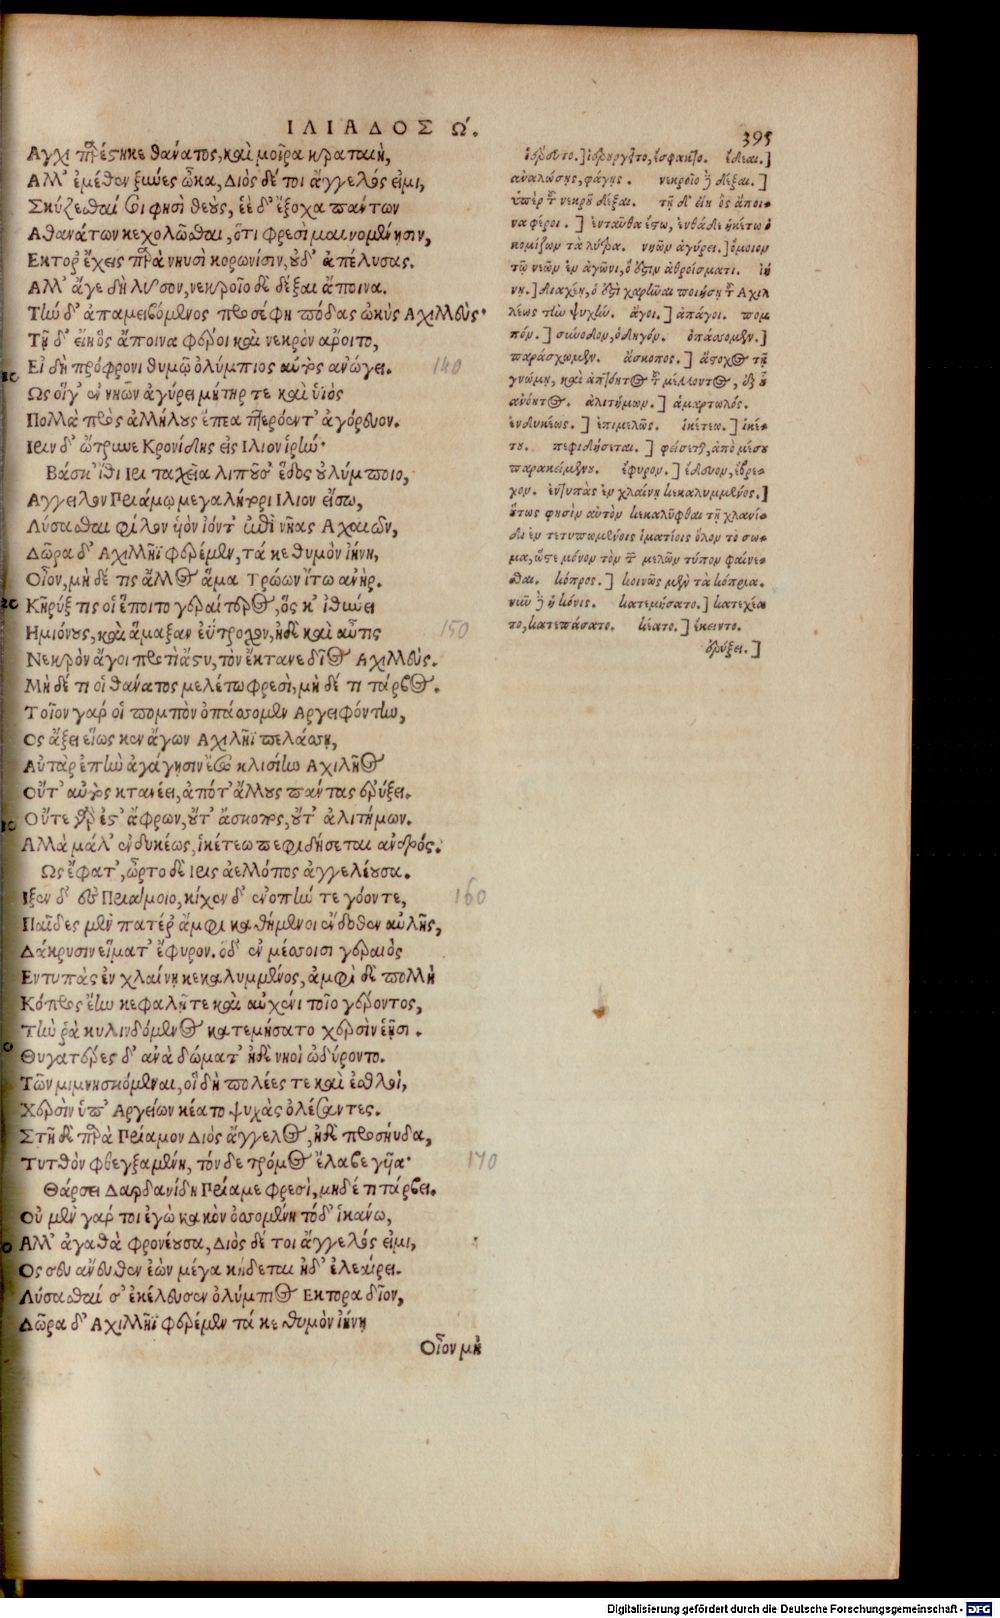 ΙΛΙΑΔΟΣ Ω.
395
Αγχι παρέστηκε θανάτος, καὶ μοῖρα κραταιὴ,
Αλλ' ἐμέθεν ξύνες ὦκα, Διὸς δέ τοι ἄγγελός εἰμι,
Σκύζεσθαί σοι φησὶ θεοὺς, ἑὲ δ' ἔξοχα πάντων
Αθανάτων κεχολῶσθαι, ὅτι φρεσὶ μαινομένῃσιν,
Εκτορ' ἔχεις παρὰ νηυσὶ κορωνίσιν, οὐδ' ἀπέλυσας.
Αλλ' ἄγε δὴ λῦσον, νεκροῖο δὲ δέξαι ἄποινα.
Τὴν δ' ἀπαμειβόμενος προσέφη πόδας ὠκὺς Αχιλλεὺς·
Τῇ δ' εἴη ὃς ἄποινα φέροι καὶ νεκρὸν ἄροιτο,
Εἰ δὴ πρόφρονι θυμῷ ὀλύμπιος αὐτὸς ἀνώγει. 140
Ως οἵγ' ἐν νηῶν ἀγύρει μήτηρ τε καὶ ὑἱὸς
Πολλὰ πρὸς ἀλλήλους ἔπεα πτερόεντ' ἀγόρευον.
Ιριν δ' ὤτρυνε Κρονίδης εἰς Ιλιον ἱρὴν·
Βάσκ' ἴθι Ιρι ταχεῖα λιποῦσ' ἕδος οὐλύμποιο,
Αγγειλον Πριάμῳ μεγαλήτορι Ιλιον εἴσω,
Λύσασθαι φίλον ὑὸν ἰόντ' ἐπὶ νῆας Αχαιῶν,
Δῶρα δ' Αχιλλῆϊ φερέμεν, τά κε θυμὸν ἰήνῃ,
Οἶον, μὴ δέ τις ἄλλος ἅμα Τρώων ἴτω ἀνήρ.
Κῆρύξ τις οἱ ἕποιτο γεραίτερος, ὅς κ' ἰθύνει
Ημιόνους, καὶ ἅμαξαν ἐΰτροχον, ἠδὲ καὶ αὖτις 150
Νεκρὸν ἄγοι προτὶ ἄστυ, τὸν ἔκτανε δῖος Αχιλλεὺς.
Μὴ δέ τι οἱ θάνατος μελέτω φρεσὶ, μὴ δέ τι τάρβος.
Τοῖον γάρ οἱ πομπὸν ὀπάσομεν Αργειφόντην,
Ος ἄξει εἵως κεν ἄγων Αχιλῆϊ πελάσῃ,
Αὐτὰρ ἐπὴν ἀγάγῃσιν ἔσω κλισίην Αχιλῆος
Οὔτ' αὐτὸς κτανέει, ἀπό τ' ἄλλους πάντας ἐρύξει.
Οὔτε γάρ ἐστ' ἄφρων, οὔτ' ἄσκοπος, οὔτ' ἀλιτήμων.
Αλλὰ μάλ' ἐνδυκέως, ἱκέτεω πεφιδήσεται ἀνδρός.
Ως ἔφατ', ὦρτο δὲ Ιρις ἀελλόπος ἀγγελέουσα.
Ιξεν δ' ἐς Πριάμοιο, κίχεν δ' ἐνοπὴν τε γόοντε, 160
Παῖδες μὲν πατέρ' ἄμφι καθήμενοι ἔνδοθεν αὐλῆς,
Δάκρυσιν εἵματ' ἔφυρον. ὅδ' ἐν μέσοισι γεραιὸς
Εντυπὰς ἐν χλαίνῃ κεκαλυμμένος, ἀμφὶ δὲ πολλὴ
Κόπρος ἔην κεφαλῇ τε καὶ αὐχένι τοῖο γέροντος,
Τὴν ῥὰ κυλινδόμενος καταμήσατο χερσὶν ἑῇσι.
Θυγατέρες δ' ἀνὰ δώματ' ἠδὲ νυοὶ ὠδύροντο.
Τῶν μιμνησκόμεναι, οἳ δὴ πολέες τε καὶ ἐσθλοὶ,
Χερσὶν ὑπ' Αργείων κέατο ψυχὰς ὀλέσαντες.
Στῆ δὲ παρὰ Πρίαμον Διὸς ἄγγελος, ἠδὲ προσηύδα,
Τυτθὸν φθεγξαμένη, τόνδε τρόμος ἔλαβε γυῖα· 170
Θάρσει Δαρδανίδη Πρίαμε φρεσὶ, μηδέ τι τάρβει.
Οὐ μὲν γάρ τοι ἐγὼ κακὸν ὀσσομένη τόδ' ἱκάνω,
Αλλ' ἀγαθὰ φρονέουσα, Διὸς δέ τοι ἄγγελός εἰμι,
Ος σευ ἄνευθεν ἐὼν μέγα κήδεται ἠδ' ἐλεαίρει.
Λύσασθαί σ' ἐκέλευσεν ὀλύμπιος Εκτορα δῖον,
Δῶρα δ' Αχιλλῆϊ φερέμεν τά κε θυμὸν ἰήνῃ
Οἶον μὴ
ἱέρευτο.] ἱερούργητο, ἐσφακτο. ἔδεαι.]
ἀναλώσῃς, φάγῃς. νεκροῖο δὲ δέξαι.]
ὑπὲρ τοῦ νεκροῦ δέξαι. τῇ δ' εἴη ὃς ἄποι-
να φέροι.] ἐνταῦθα ἔστω, ἐνθάδε ἡκέτω ὁ
κομίζων τὰ λύτρα. νηῶν ἀγύρει.] ὅμοιον
τῷ νεῶν ἐν ἀγῶνι, ὅ ἐστιν ἀθροίσματι. ἰή
νῃ.] διαχέῃ, ὅ ἐστι χαρῆναι ποιήσῃ τοῦ Αχιλ
λέως τὴν ψυχήν. ἄγοι.] ἀπάγοι. πομ
πόν.] σύνοδον, ὁδηγόν. ὀπάσομεν.]
παράσχωμεν. ἄσκοπος.] ἄστοχος τῇ
γνώμῃ, καὶ ἀπόντος τοῦ μέλλοντος,
ἀλιτήμων.] ἁμαρτωλός.
ἐνδυκέως.] ἐπιμελῶς. ἱκέτεω.] ἱκέ-
του. πεφιδήσεται.] φείσεται, ἀπὸ μέσου
παρακειμένου. ἔφυρον.] ἔδευον, ἔβρε-
χον. ἐντυπὰς ἐν χλαίνῃ κεκαλυμμένος.]
οὕτως φησὶν αὐτὸν κεκαλύφθαι τῇ χλανί-
δι ἐν τετυπωμένοις ἱματίοις ὅλον τὸ σω-
μα, ὥστε μόνον τὸν τῶν μελῶν τύπον φαίνε-
σθαι. κόπρος.] κοινῶς μὲν τὰ κόπρια.
νῦν δὲ ἡ κόνις. καταμήσατο.] κατεχέα-
το, κατεπάσατο. κέατο.] ἔκειντο.
ἐρύξει.]
Digitalisierung gefördert durch die Deutsche Forschungsgemeinschaft - DFG